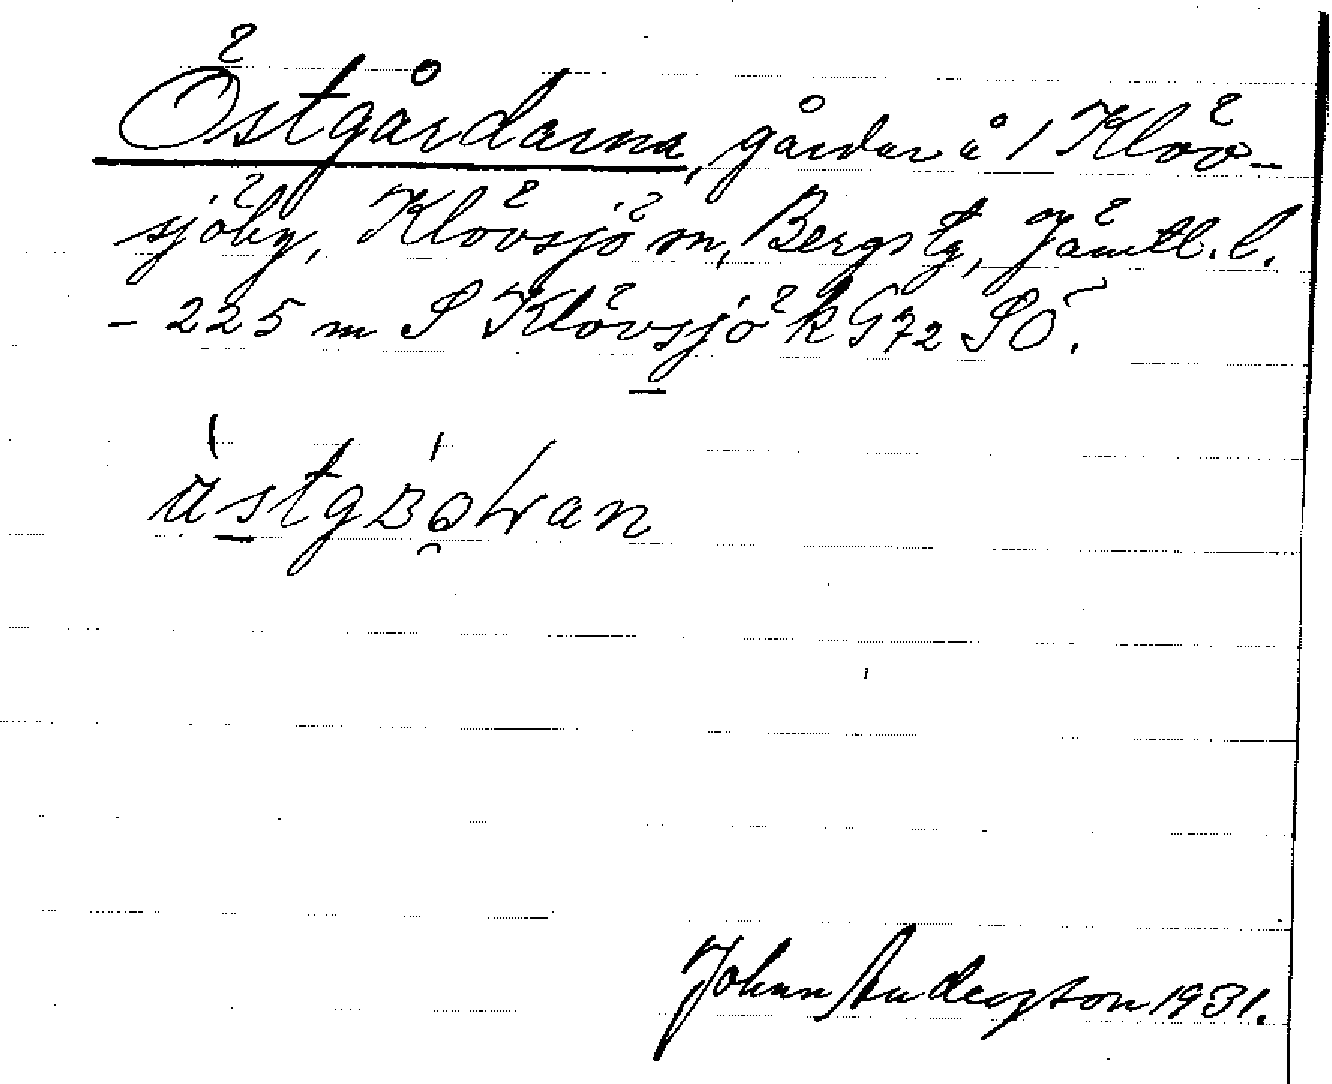 Östgårdarna, gårdar å 1 Klöv-
sjöby, Klövsjö sn, Bergs tg, Jämtl. l.
- 225 m S Klövsjö k G72 SÖ.
Johan Anderzson 1931.